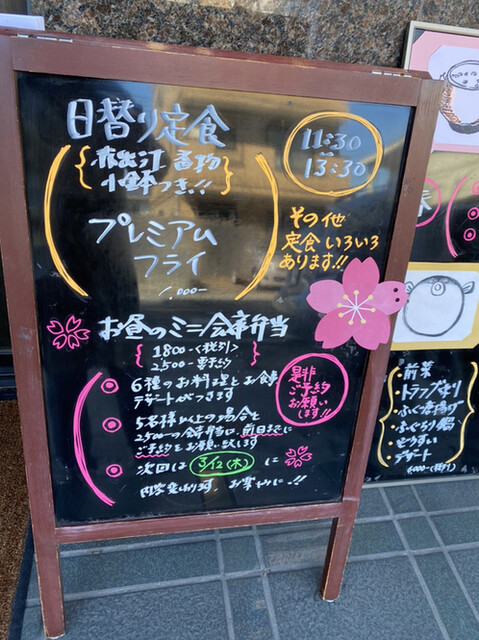 日替り定食
11:30
~
13:30
赤出汁 香物
小鉢つき!!
プレミアム
フライ
1,000-
その他
定食いろいろ
あります!!
お昼のミニ会席弁当
1800-<税別>
2500-要予約
6種のお料理とお食事
デザートがつきます
5名様以上の場合と
2500-の会席弁当は、前日までに
ご予約をお願い致します
是非
ご予約
お願い
します!!
次回は 3/12(木) に
内容変わります。お楽しみに!!
春
・前菜
・ふぐ唐揚げ
・ふぐちり鍋
・ぞうすい
・デザート